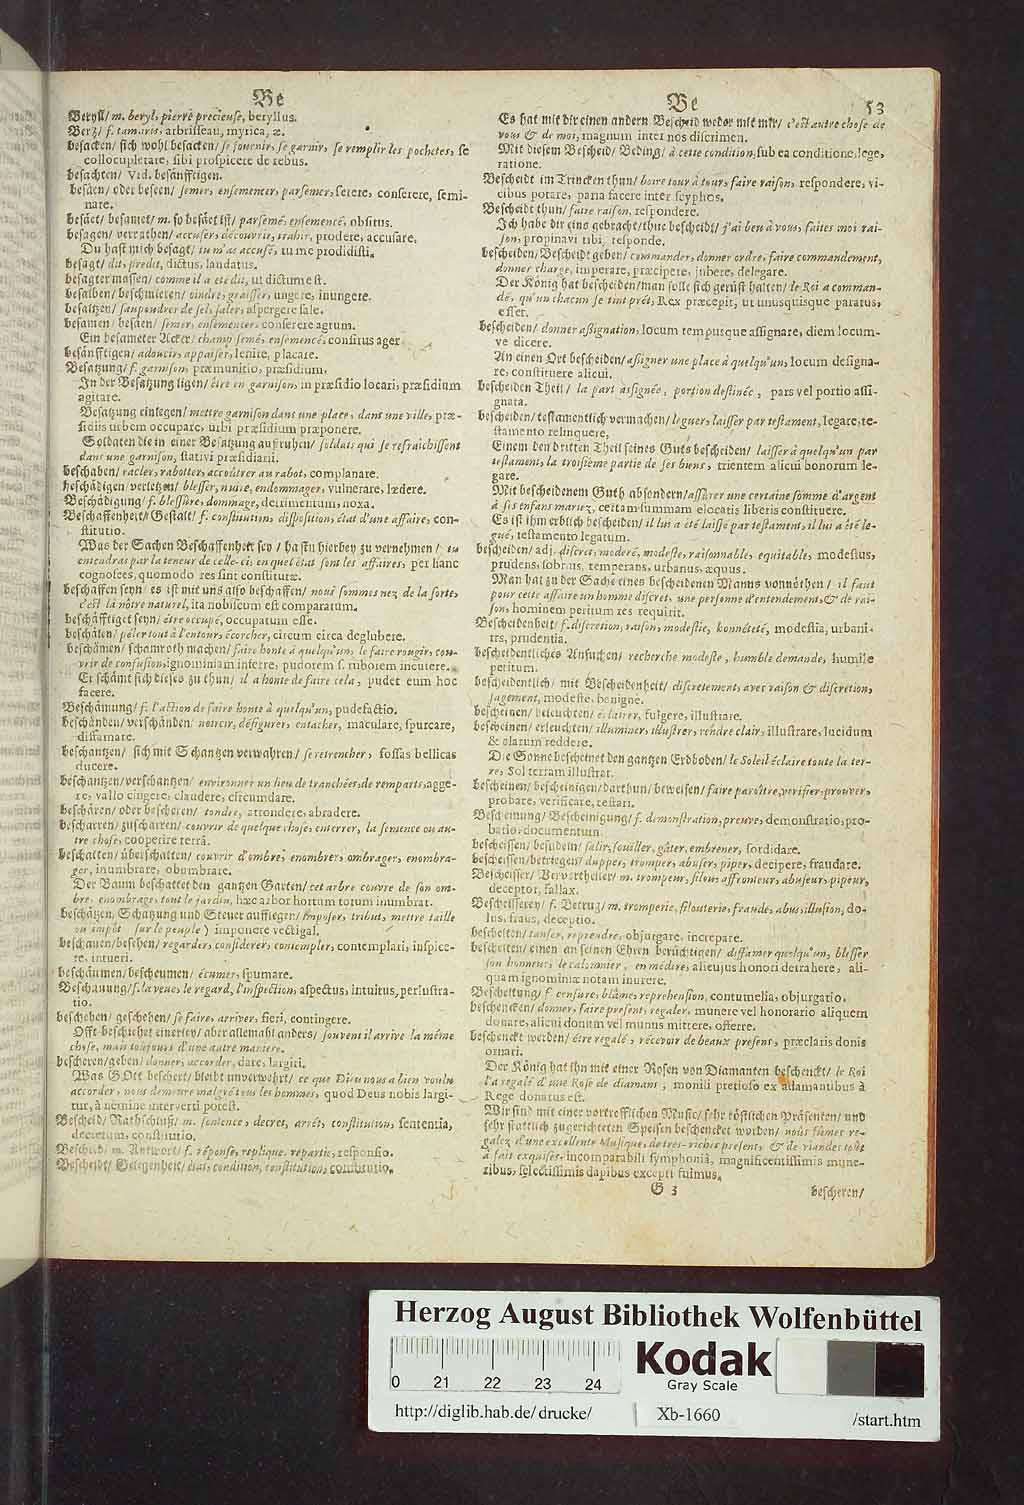 Be
Beryll/ m. beryl, pierre precieuse, beryllus.
Bertz/ f. tamaris, arbrisseau, myrica, æ.
besacken/ sich wohl besacken/ se fournir, se garnir, se remplir les pochetes, se
collocupletare, sibi prospicere de rebus.
besachten/ Vid. besänfftigen.
besäen/ oder beseen/ semer, ensementer, parsemer, serere, conserere, semi-
nare.
besäet/ besamet/ m. so besäet ist/ parsemé, ensemencé, obsitus.
besagen/ verrathen/ accuser, découvrir, trahir, prodere, accusare.
Du hast mich besagt/ tu m'as accusé, tu me prodidisti.
besagt/ dit, predit, dictus, laudatus.
besagter massen/ comme il a eté dit, ut dictum est.
besalben/ beschmieren/ oindre, graisser, ungere, inungere.
besaltzen/ saupondrer de sel, saler, aspergere sale.
besamen/ besäen/ semer, ensementer, conserere agrum.
Ein besameter Acker/ champ semé, ensemencé, consitus ager.
besänfftigen/ adoucir, appaiser, lenire, placare.
Besatzung/ f. garnison, præmunitio, præsidium.
In der Besatzung ligen/ être en garnison, in præsidio locari, præsidium
agitare.
Besatzung einlegen/ mettre garnison dans une place, dans une ville, præ-
sidiis urbem occupare, urbi præsidium præponere.
Soldaten die in einer Besatzung aufruhen/ soldats qui se refraichissent
dans une garnison, stativi præsidiarii.
beschaben/ racler, rabotter, accoûtrer au rabot, complanare.
beschädigen/ verletzen/ blesser, nuire, endommager, vulnerare, lædere.
Beschädigung/ f. blessure, dommage, detrimentum, noxa.
Beschaffenheit/ Gestalt/ f. constitution, disposition, état d'une affaire, con-
stitutio.
Was der Sachen Beschaffenheit sey/ hastu hierbey zu vernehmen/ tu
entendras par la teneur de celle-ci, en quel état sont les affaires, per hanc
cognosces, quomodo res sint constitutæ.
beschaffen seyn/ es ist mit uns also beschaffen/ nous sommes nez de la sorte,
c'est là nôtre naturel, ita nobiscum est comparatum.
beschäfftiget seyn/ être occupé, occupatum esse.
beschälen/ péler tout à l'entour, écorcher, circum circa deglubere.
beschämen/ schamroth machen/ faire honte à quelqu'un, le faire rougir, cou-
vrir de confusion, ignominiam inferre, pudorem s. ruborem incutere.
Er schämt sich dieses zu thun/ il a honte de faire cela, pudet eum hoc
facere.
Beschämung/ f. l'action de faire honte à quelqu'un, pudefactio.
beschänden/ verschänden/ noircir, défigurer, entacher, maculare, spurcare,
diffamare.
beschantzen/ sich mit Schantzen verwahren/ se retrencher, fossas bellicas
ducere.
beschantzen/ verschantzen/ environner un lieu de tranchées, de remparts, agge-
re, vallo cingere, claudere, circumdare.
beschären/ oder bescheren/ tondre, attondere, abradere.
bescharren/ zuscharren/ couvrir de quelque chose, enterrer, la semence ou au-
tre chose, cooperire terrâ.
beschatten/ überschatten/ couvrir d'ombre, enombrer, ombrager, enombra-
ger, inumbrare, obumbrare.
Der Baum beschattet den gantzen Garten/ cet arbre couvre de son om-
bre, enombrage, tout le jardin, hæc arbor hortum totum inumbrat.
beschätzen, Schatzung und Steuer aufflegen/ imposer, tribut, mettre taille
ou impôt (sur le peuple) imponere vectigal.
beschauen/ besehen/ regarder, considerer, contempler, contemplari, inspice-
re, intueri.
beschäumen/ bescheumen/ écumer, spumare.
Beschauung/ f. la veue, le regard, l'inspection, aspectus, intuitus, perlustra-
tio.
beschehen/ geschehen/ se faire, arriver, fieri, contingere.
Offt beschiehet einerley/ aber allemahl anders/ souvent il arrive la même
chose, mais toujours d'une autre maniere.
bescheren/ geben/ donner, accorder, dare, largiri.
Was GOtt beschert/ bleibt unverwehrt/ ce que Dieu nous a bien voulu
accorder, nous demeure malgré tous les hommes, quod Deus nobis largi-
tur, à nemine interverti potest.
Bescheid/ Rathschluß/ m. sentence, decret, arrêt, constitution, sententia,
decretum, constitutio.
Bescheid/ m. Antwort/ f. réponse, replique, repartie, responsio.
Bescheidt/ Gelegenheit/ état, condition, constitution, constitutio.
Be 53
Es hat mit dir einen andern Bescheid weder mit mir/ c'est autre chose de
vous & de moi, magnum inter nos discrimen.
Mit diesem Bescheid/ Beding/ à cette condition, sub ea conditione, lege,
ratione.
Bescheidt im Trincken thun/ boire tour à tour, faire raison, respondere, vi-
cibus potare, paria facere inter scyphos.
Bescheidt thun/ faire raison, respondere.
Ich habe dir eins gebracht/ thue bescheidt/ j'ai beu à vous, faites moi rai-
son, propinavi tibi, responde.
bescheiden/ Bescheidt geben/ commander, donner ordre, faire commandement,
donner charge, imperare, præcipere, jubere, delegare.
Der König hat bescheiden/ man solle sich gerüst halten/ le Roi a comman-
dé, qu'un chacun se tint prêt, Rex præcepit, ut unusquisque paratus,
esset.
bescheiden/ donner assignation, locum tempusque assignare, diem locum-
ve dicere.
An einen Ort bescheiden/ assigner une place à quelqu'un, locum designa-
re, constituere alicui.
bescheiden Theil/ la part assignée, portion destinée, pars vel portio assi-
gnata.
bescheiden/ testamentlich vermachen/ leguer, laisser par testament, legare, te-
stamento relinquere,
Einem den dritten Theil seines Guts bescheiden/ laisser à quelqu'un par
testament, la troisième partie de ses biens, trientem alicui bonorum le-
gare.
Mit bescheidenem Guth absondern/ assûrer une certaine somme d'argent
à ses enfans mariez, certam summam elocatis liberis constituere.
Es ist ihm erblich bescheiden/ il lui a été laissé par testament, il lui a été le-
gué, testamento legatum.
bescheiden/ adj. discret, moderé, modeste, raisonnable, equitable, modestus,
prudens, sobrius, temperans, urbanus, æquus.
Man hat zu der Sache eines bescheidenen Manns vonnöthen/ il faut
pour cette affaire un homme discret, une personne d'entendement, & de rai-
son, hominem peritum res requirit.
Bescheidenheit/ f. discretion, raison, modestie, honnêteté, modestia, urbani-
tas, prudentia.
bescheidentliches Ansuchen/ recherche modeste, humble demande, humile
petitum.
bescheidentlich/ mit Bescheidenheit/ discretement, avec raison & discretion,
sagement, modeste, benigne.
bescheinen/ beleuchten/ éclairer, fulgere, illustrare.
bescheinen/ erleuchten/ illuminer, illustrer, rendre clair, illustrare, lucidum
& clarum reddere.
Die Sonne bescheinet den gantzen Erdboden/ le Soleil éclaire toute la ter-
re, Sol terram illustrat.
bescheinen/ bescheinigen/ darthun/ beweisen/ faire paroître, verifier, prouver,
probare, verificare, testari.
Bescheinung/ Bescheinigung/ f. demonstration, preuve, demonstratio, pro-
batio, documentum.
bescheissen/ besudeln/ salir, souiller, gâter, embrener, sordidare.
bescheissen/ betriegen/ dupper, tromper, abuser, piper, decipere, fraudare.
Bescheisser/ Vervortheiler/ m. trompeur, filou, affronteur, abuseur, pipeur,
deceptor, fallax.
Bescheisserey/ f. Betrug/ m. tromperie, filouterie, fraude, abus, illusion, do-
lus, fraus, deceptio.
beschelten/ tanser, reprendre, objurgare, increpare.
beschelten/ einen an seinen Ehren berüchtigen/ diffamer quelqu'un, blesser
son honneur, le calomnier, en médire, alicujus honori detrahere, ali-
quam ignominiæ notam inurere.
Bescheltung/ f. censure, blâme, reprehension, contumelia, objurgatio.
beschencken/ donner, faire present, regaler, munere vel honorario aliquem
donare, alicui donum vel munus mittere, offerre.
beschenckt werden/ être regalé, recevoir de beaux presens, præclaris donis
ornari.
Der König hat ihn mit einer Rosen von Diamanten beschenckt/ le Roi
l'a regalé d'une Rose de diamans, monili pretioso ex adamantibus à
Rege donatus est.
Wir sind mit einer vortrefflichen Music/ sehr köstlichen Präsenten/ und
sehr stattlich zugerichteten Speisen beschencket worden/ nous fûmes re-
galez d'une excellente Musique, de tres-riches presens, & de viandes tout
à fait exquises, incomparabili symphoniâ, magnificentissimis mune-
ribus, selectissimis dapibus excepti fuimus.
G 3 bescheren/
Herzog August Bibliothek Wolfenbüttel
Kodak
Gray Scale
0 21 22 23 24
http://diglib.hab.de/drucke/ Xb-1660 /start.htm